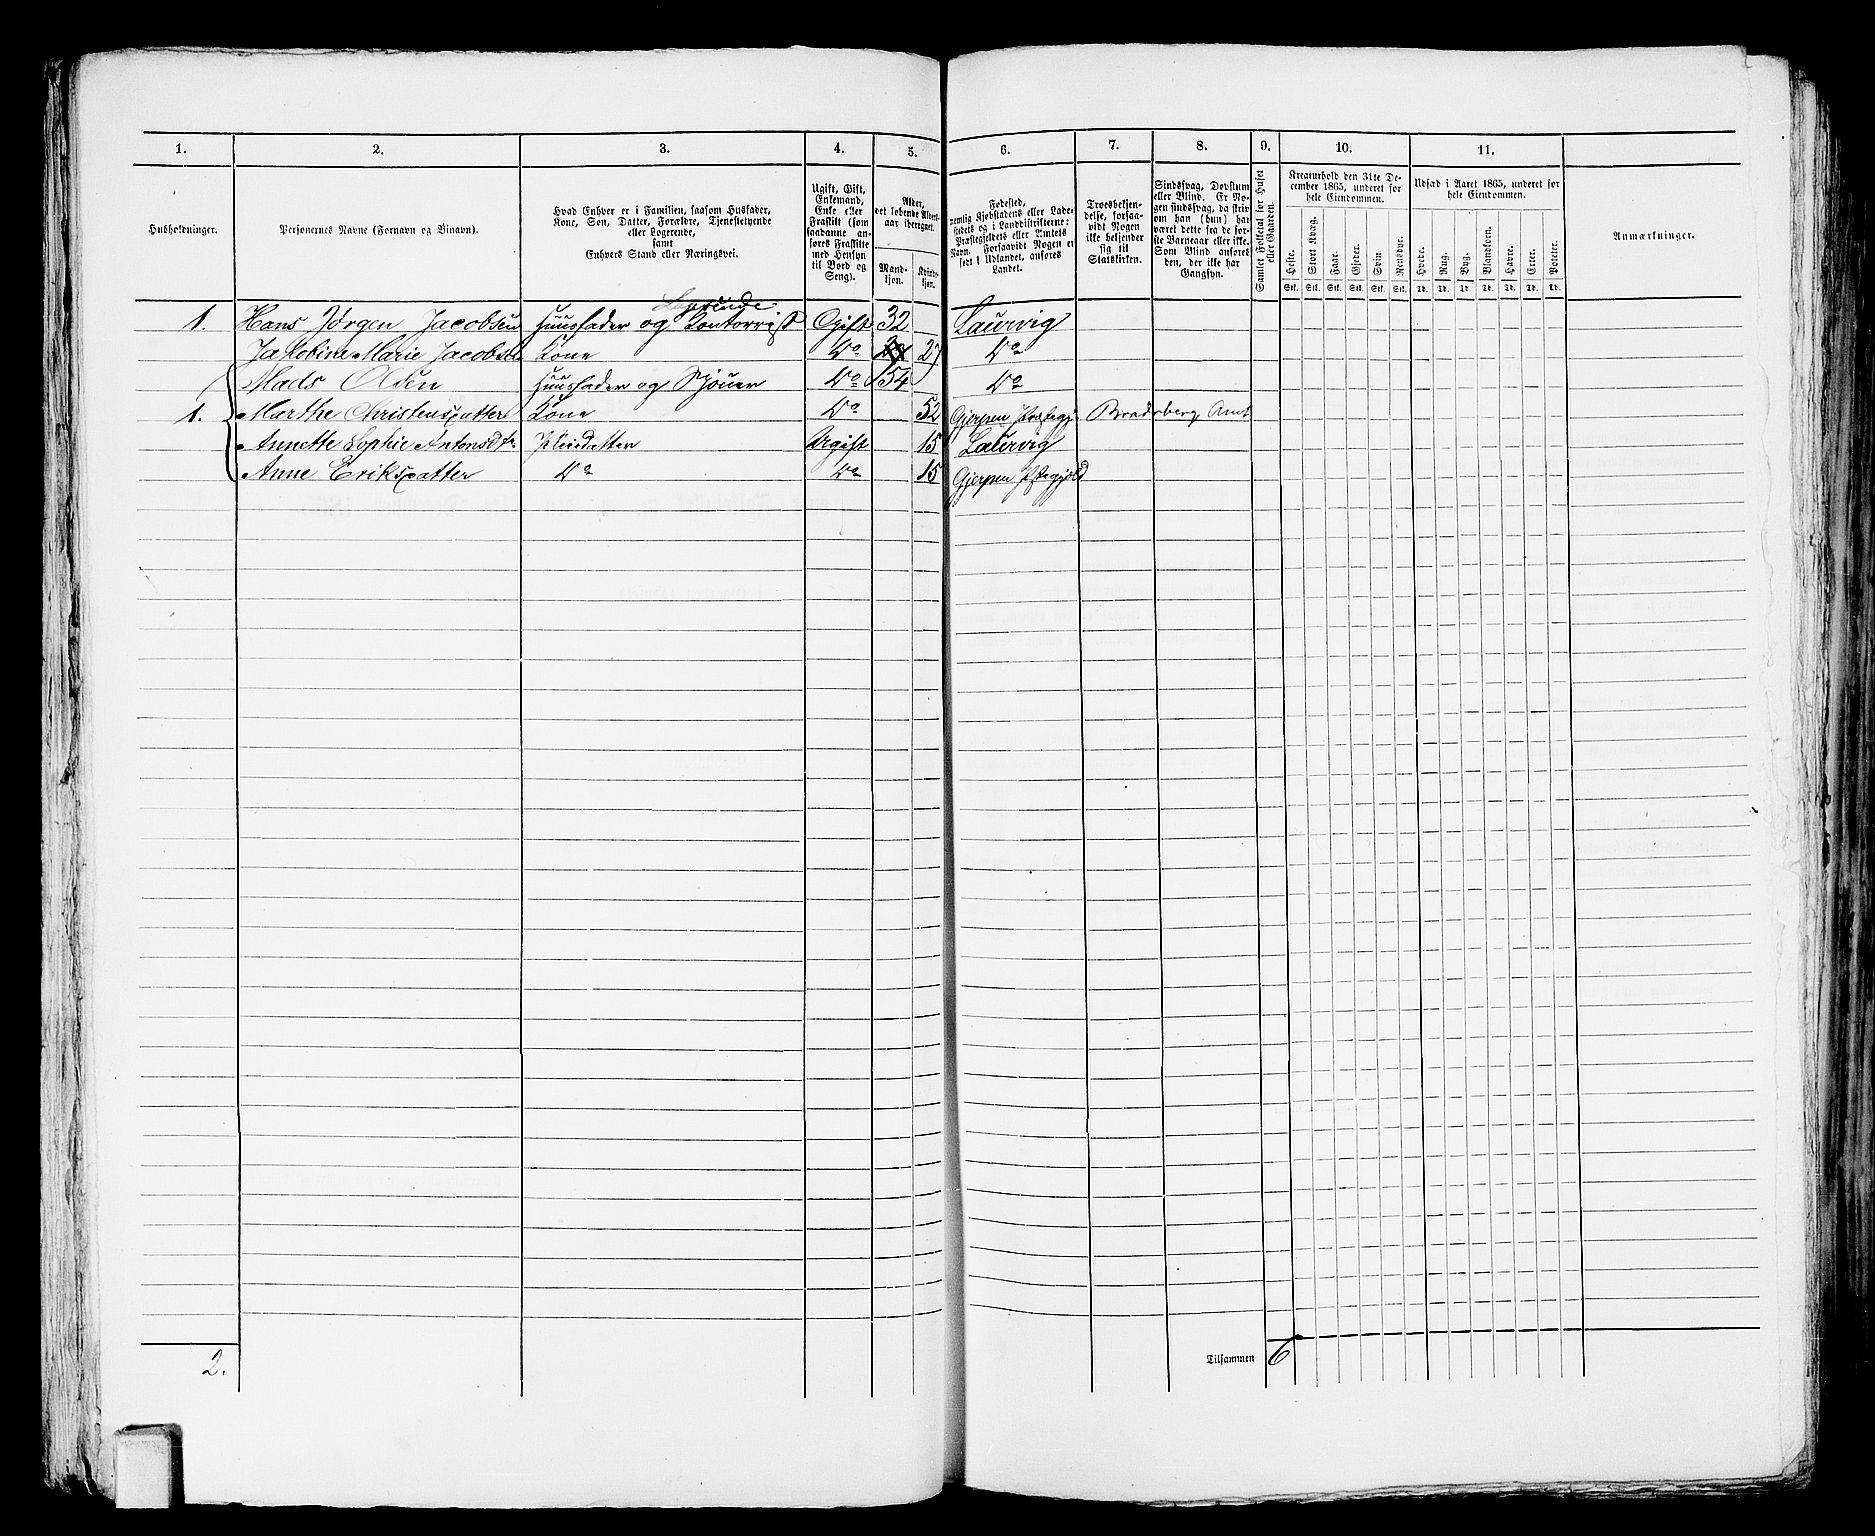 1. 2. 3. 4. 5. 6. 7. 8. 9. 10. 11.
Husholdninger.
Personernes Navne (Fornavn og Binavn).
Hvad Enhver er i Familien, saasom Husfader,
Kone, Søn, Datter, Forældre, Tjenestetyende
eller Logerende,
samt
Enhvers Stand eller Næringsvei.
Ugift, Gift,
Enkemand,
Enke eller
Fraskilt (som
saadanne an-
føres Fraskilte
med Hensyn
til Bord og
Seng).
Alder,
det løbende Alders-
aar iberegnet.
Mand-
kjøn.
Kvinde-
kjøn.
Fødested,
nemlig Kjøbstadens eller Lade-
stedets og i Landdistrikterne:
Præstegjeldets eller Amtets
Navn. Forsaavidt Nogen er
født i Udlandet, anføres
Landet.
Troesbekjen-
delse, forsaa-
vidt Nogen
ikke bekjender
sig til
Statskirken.
Sindssvag, Døvstum
eller Blind. Er No-
gen sindssvag, da skriv
om han (hun) har
været dette fra de før-
ste Barneaar eller ikke.
Som Blind anføres
den, der ikke har
Gangsyn.
Samlet Folketal for Huset
eller Gaarden.
Kreaturhold den 31te De-
cember 1865, underet for
hele Eiendommen.
Heste. Stort Kvæg. Faar. Gjeder. Svin. Rensdyr.
Stk. Stk. Stk. Stk. Stk. Stk.
Udsæd i Aaret 1865, underet for
hele Eiendommen.
Hvede. Rug. Byg. Blandkorn. Havre. Erter. Poteter.
Td. Td. Td. Td. Td. Td. Td.
Anmærkninger.
Logerende
1. Hans Jørgen Jacobsen Huusfader og Kontorrist Gift 32 Laurvig
Jakobine Marie Jacobsen Kone Do 27 Do
Mads Olsen Huusfader og Sjøuer Do 54 Do
1. Marthe Christensdatter Kone Do 52 Gjerpen Præstegj. Bradsberg Amt
Annette Sophie Antonsdtr Pleiedatter Ugift 15 Laurvig
Anne Eriksdatter Do Do 15 Gjerpen Pstegjæld
2. Tilsammen 6